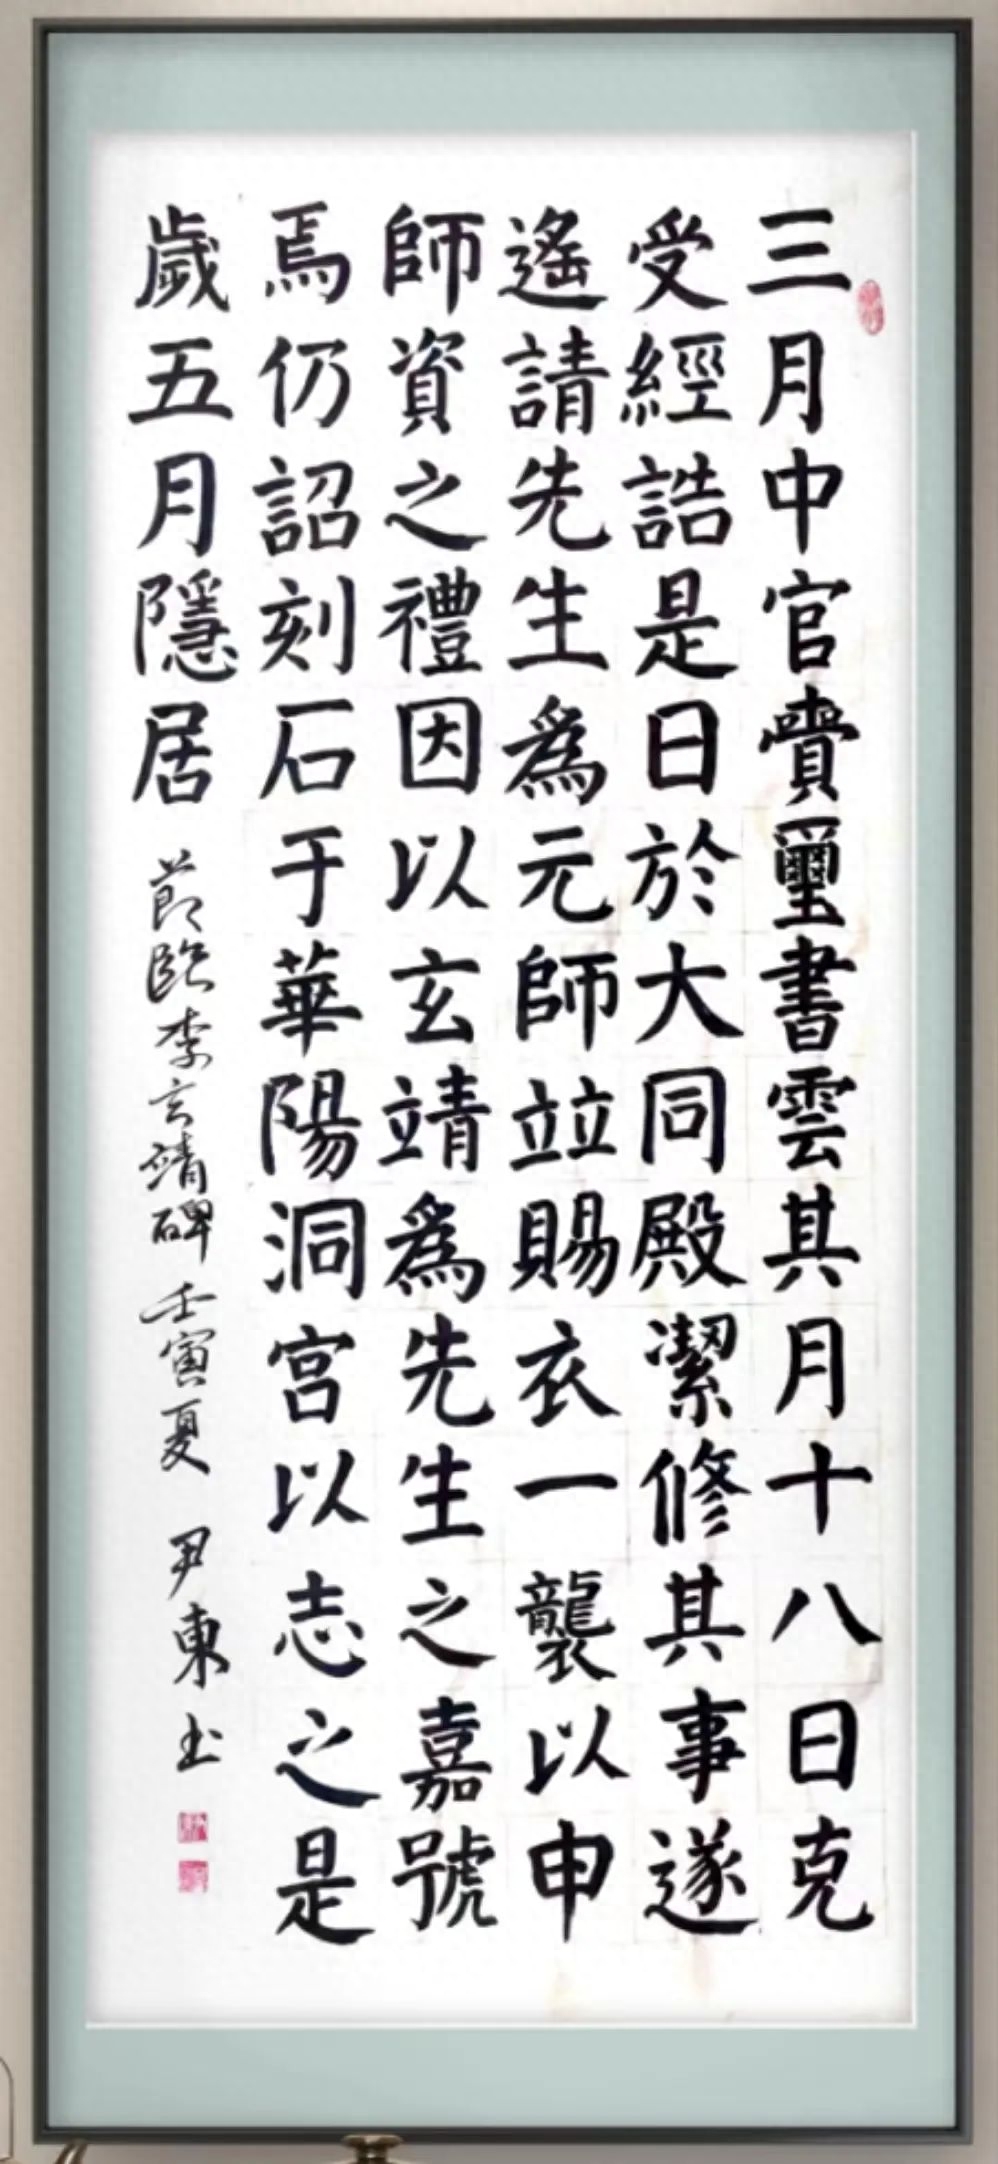 三月中官賷璽書雲其月十八日克
受經誥是日於大同殿潔修其事遂
遙請先生為元師竝賜衣一襲以申
師資之禮因以玄靖為先生之嘉號
焉仍詔刻石于華陽洞宮以志之是
歲五月隱居
節臨李玄靖碑 壬寅夏 尹東书